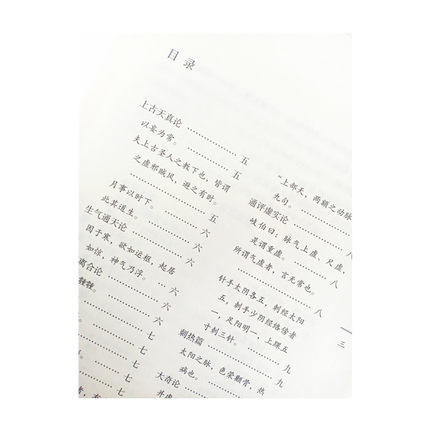 目录
上古天真论
以妄为常。 五
夫上古圣人之教下也，皆谓
之虚邪贼风，避之有时。
五
月事以时下。 五
此其道生。 六
生气通天论 六
因于寒，欲如运枢，起居
如惊，神气乃浮。 六
离合论
七
七
七
“上部天，两额之动脉
九句。
通评虚实论 八
岐伯曰：脉气上虚，尺虚，
是谓重虚。
所谓气虚者，言无常也。
八
针手太阴各五，刺经太阳
五，刺手少阴经络傍者
一，足阳明一，上踝五
寸刺三针。 八
刺热篇 九
太阳之脉，色荣颧骨，热
病也。 九
大奇论
三